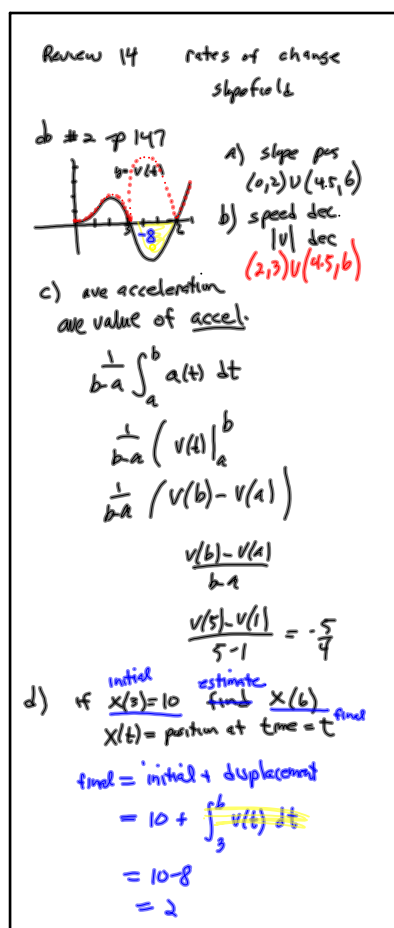 Review 14 rates of change
slopefield
do #2 p 147
y=v(t)
-8
3
6
a) slope pos
(0,2)∪(4.5,6)
b) speed dec.
|v| dec
(2,3)∪(4.5,6)
c) ave acceleration
ave value of accel.
1/(b-a) ∫_a^b a(t) dt
1/(b-a) (v(t)|_a^b
1/(b-a) (v(b)-v(a))
(v(b)-v(a))/(b-a)
(v(5)-v(1))/(5-1) = -5/4
initial estimate
d) if x(3)=10 find x(6)
final
x(t)= position at time = t
final = initial + displacement
= 10 + ∫_3^6 v(t) dt
= 10-8
= 2